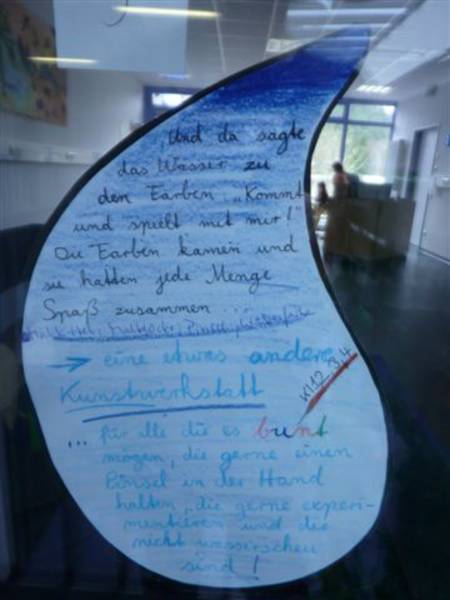 Und da sagte
das Wasser zu
den Farben: „Kommt
und spielt mit mir!"
Die Farben kamen und
sie hatten jede Menge
Spaß zusammen ...
→ eine etwas andere
Kunstwerkstatt
Kl 2, 3, 4
... für alle die es bunt
mögen, die gerne einen
Pinsel in der Hand
halten, die gerne experi-
mentieren und die
nicht wasserscheu
sind!